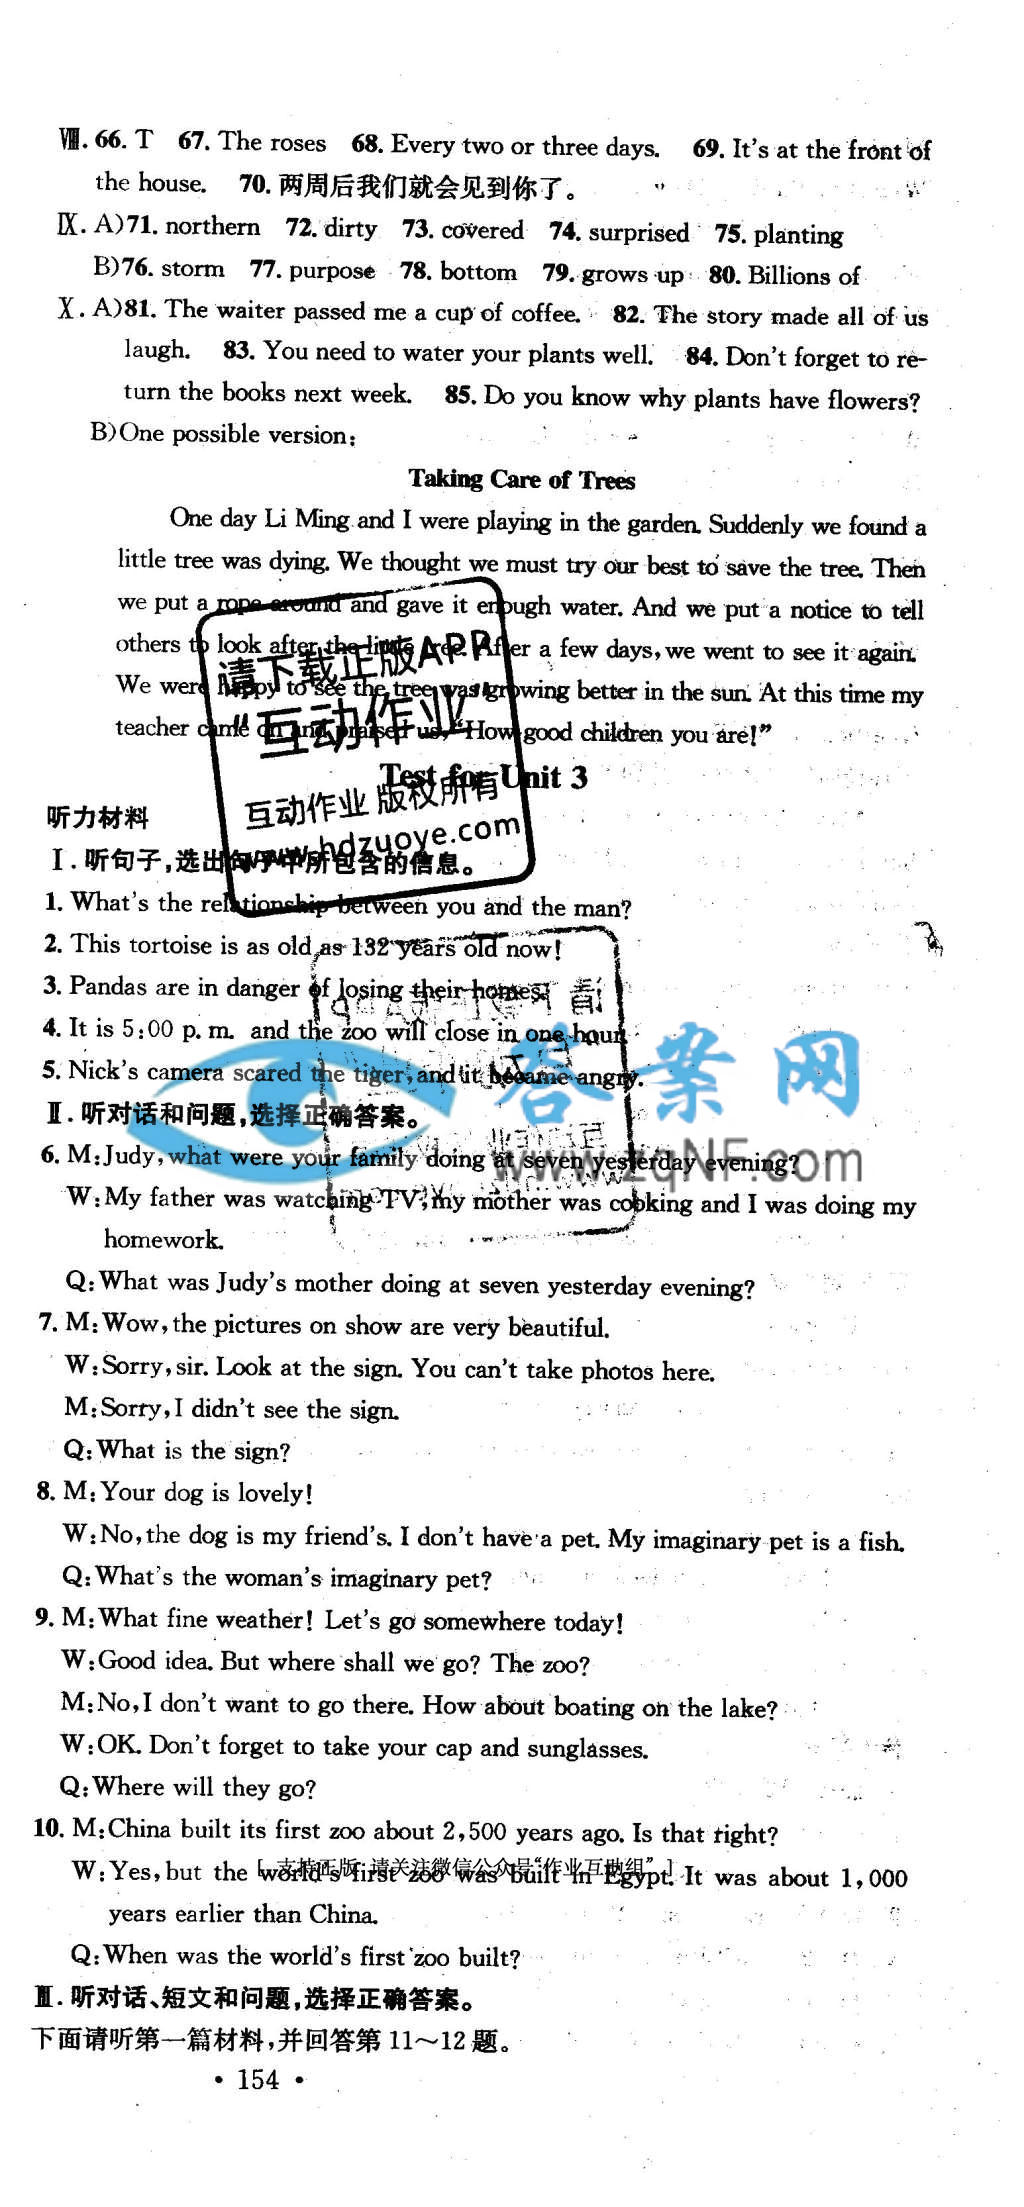 Ⅷ. 66. T 67. The roses 68. Every two or three days. 69. It's at the front of
the house. 70. 两周后我们就会见到你了。
Ⅸ. A)71. northern 72. dirty 73. covered 74. surprised 75. planting
B)76. storm 77. purpose 78. bottom 79. grows up 80. Billions of
Ⅹ. A)81. The waiter passed me a cup of coffee. 82. The story made all of us
laugh. 83. You need to water your plants well. 84. Don't forget to re-
turn the books next week. 85. Do you know why plants have flowers?
B)One possible version:
Taking Care of Trees
One day Li Ming and I were playing in the garden. Suddenly we found a
little tree was dying. We thought we must try our best to save the tree. Then
we put a rope around and gave it enough water. And we put a notice to tell
others to look after the little tree. After a few days, we went to see it again.
We were happy to see the tree was growing better in the sun. At this time my
teacher came on and praised us, "How good children you are!"
请下载正版APP
"互动作业"
互动作业 版权所有
www.hdzuoye.com
Test for Unit 3
听力材料
Ⅰ. 听句子,选出句子中所包含的信息。
1. What's the relationship between you and the man?
2. This tortoise is as old as 132 years old now!
3. Pandas are in danger of losing their homes.
4. It is 5:00 p. m. and the zoo will close in one hour.
5. Nick's camera scared the tiger, and it became angry.
答案网
www.zqNF.com
Ⅱ. 听对话和问题,选择正确答案。
6. M: Judy, what were your family doing at seven yesterday evening?
W: My father was watching TV, my mother was cooking and I was doing my
homework.
Q: What was Judy's mother doing at seven yesterday evening?
7. M: Wow, the pictures on show are very beautiful.
W: Sorry, sir. Look at the sign. You can't take photos here.
M: Sorry, I didn't see the sign.
Q: What is the sign?
8. M: Your dog is lovely!
W: No, the dog is my friend's. I don't have a pet. My imaginary pet is a fish.
Q: What's the woman's imaginary pet?
9. M: What fine weather! Let's go somewhere today!
W: Good idea. But where shall we go? The zoo?
M: No, I don't want to go there. How about boating on the lake?
W: OK. Don't forget to take your cap and sunglasses.
Q: Where will they go?
10. M: China built its first zoo about 2,500 years ago. Is that right?
W: Yes, but the world's first zoo was built in Egypt. It was about 1,000
[ 支持正版, 请关注微信公众号"作业互助组" ]
years earlier than China.
Q: When was the world's first zoo built?
Ⅲ. 听对话、短文和问题,选择正确答案。
下面请听第一篇材料,并回答第 11～12 题。
• 154 •